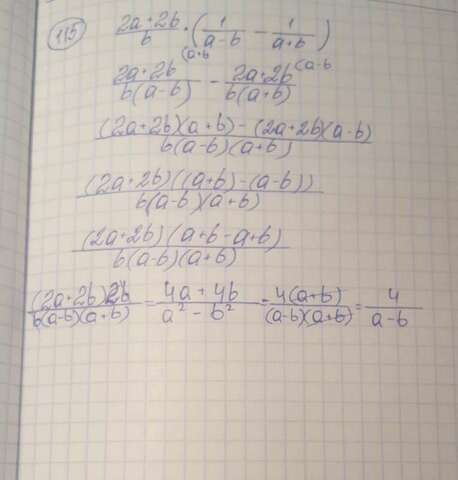 115 (2a+2b)/b · (1/(a-b) - 1/(a+b))
(a+b (2a+2b)/(b(a-b)) - (2a+2b)/(b(a+b)) (a-b
((2a+2b)(a+b)-(2a+2b)(a-b))/(b(a-b)(a+b))
((2a+2b)((a+b)-(a-b)))/(b(a-b)(a+b))
((2a+2b)(a+b-a+b))/(b(a-b)(a+b))
((2a+2b)2b)/(b(a-b)(a+b)) = (4a+4b)/(a²-b²) = (4(a+b))/((a-b)(a+b)) = 4/(a-b)